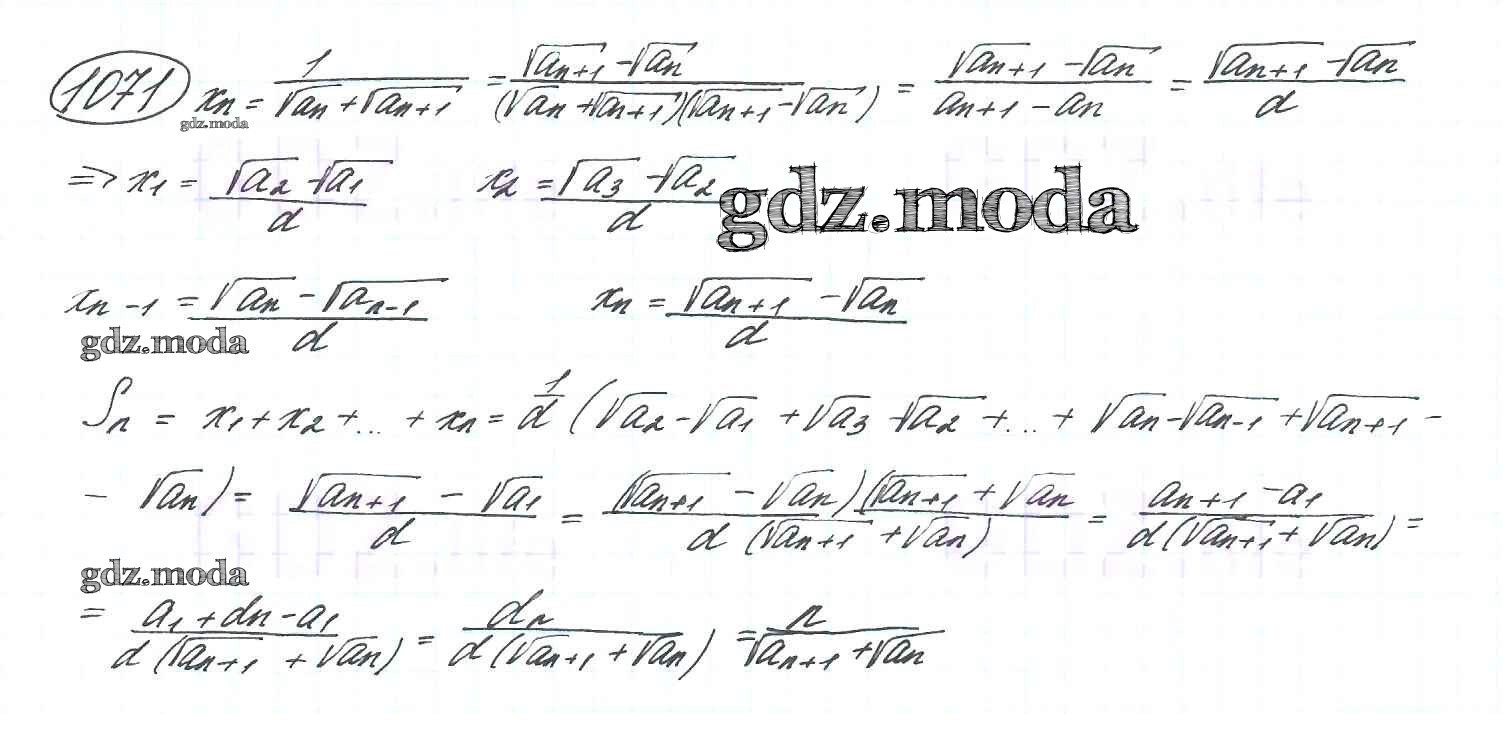 1071 xₙ = 1/(√aₙ + √aₙ₊₁) = (√aₙ₊₁ - √aₙ)/((√aₙ + √aₙ₊₁)(√aₙ₊₁ - √aₙ)) = (√aₙ₊₁ - √aₙ)/(aₙ₊₁ - aₙ) = (√aₙ₊₁ - √aₙ)/d
gdz.moda
=> x₁ = (√a₂ - √a₁)/d x₂ = (√a₃ - √a₂)/d
gdz.moda
xₙ₋₁ = (√aₙ - √aₙ₋₁)/d xₙ = (√aₙ₊₁ - √aₙ)/d
gdz.moda
Sₙ = x₁ + x₂ + ... + xₙ = 1/d (√a₂ - √a₁ + √a₃ - √a₂ + ... + √aₙ - √aₙ₋₁ + √aₙ₊₁ -
- √aₙ) = (√aₙ₊₁ - √a₁)/d = (√aₙ₊₁ - √aₙ)(√aₙ₊₁ + √aₙ/d(√aₙ₊₁ + √aₙ) = (aₙ₊₁ - a₁)/(d(√aₙ₊₁ + √aₙ)) =
gdz.moda
= (a₁ + dn - a₁)/(d(√aₙ₊₁ + √aₙ)) = dn/(d(√aₙ₊₁ + √aₙ)) = n/(√aₙ₊₁ + √aₙ)